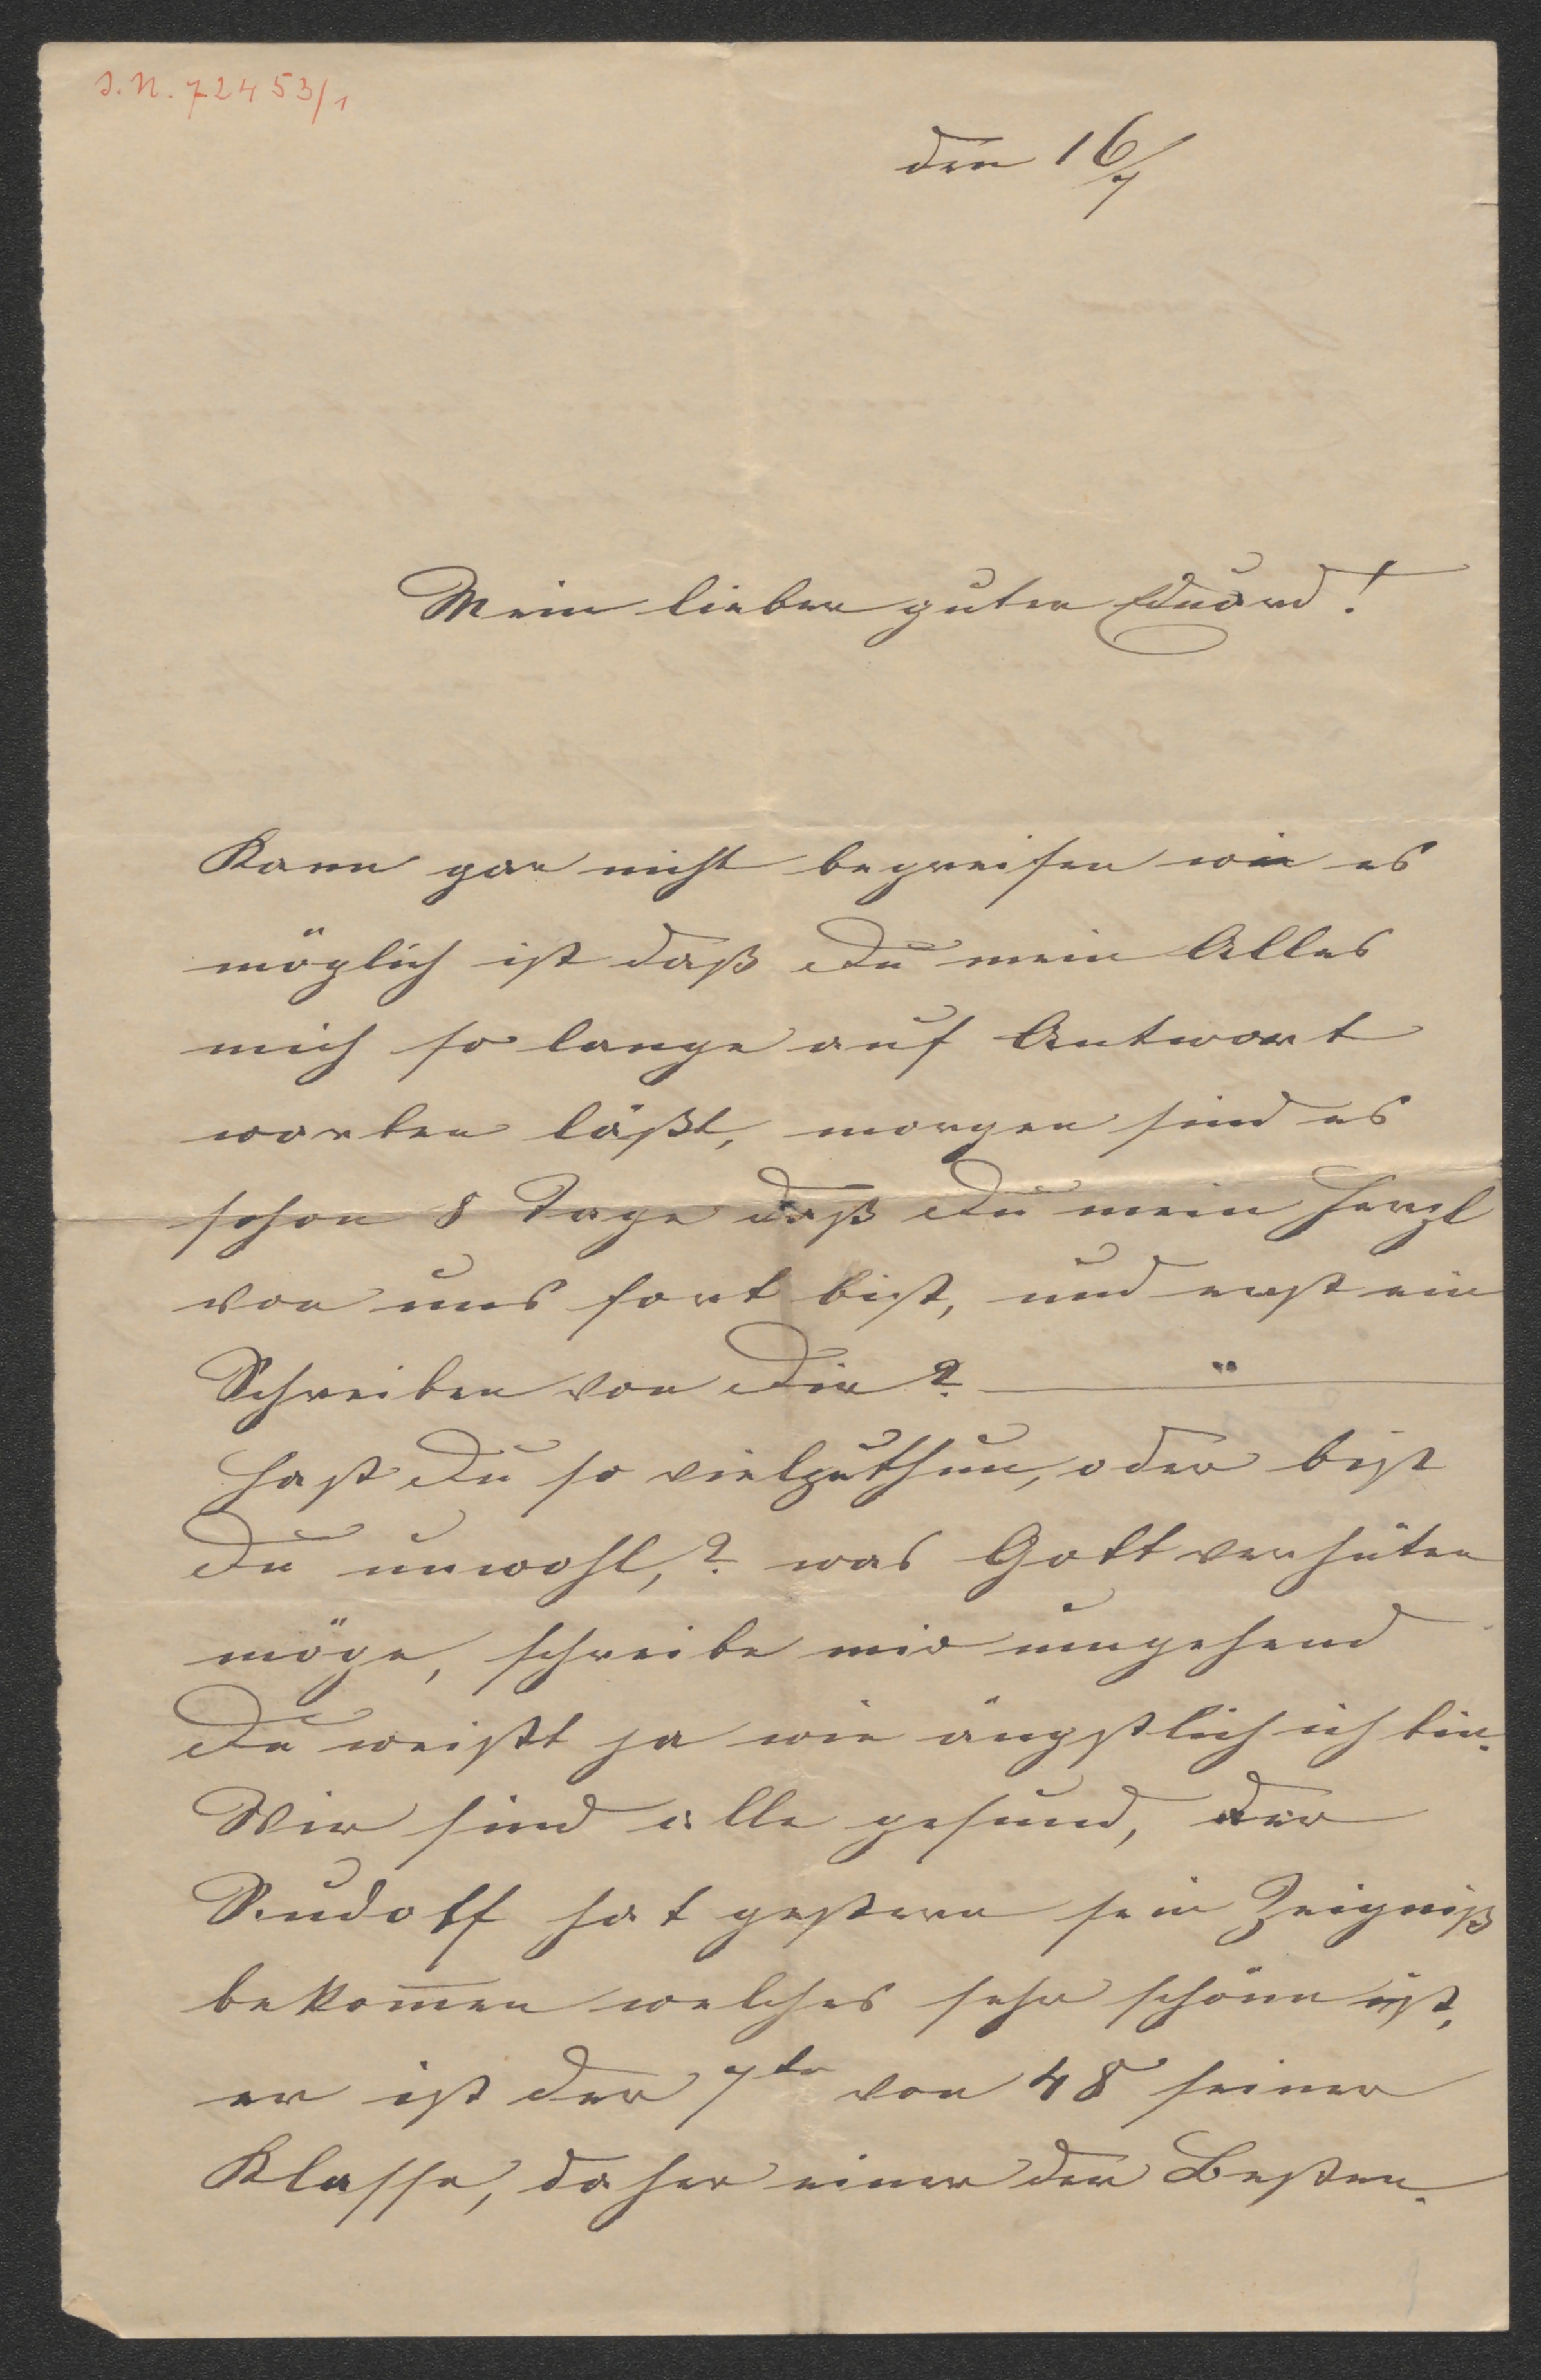 I.N. 72453/1
den 16/7
Mein lieber guter Eduard!
Kann gar nicht begreifen wie es
möglich ist daß Du mein Alles
mich so lange auf Antwort
warten läßt, morgen sind es
schon 8 Tage daß Du mein Herzl
von uns fort bist, und erst ein
Schreiben von Dir?
Hast Du so viel zu thun, oder bist
Du unwohl,? was Gott verhüten
möge, schreibe mir umgehend
Du weißt ja wie ängstlich ich bin.
Wir sind alle gesund, der
Rudolf hat gestern sein Zeigniß
bekom̄en welches sehr schön ist,
er ist der 7te von 48 seiner
Klasse, daher einer der Besten.